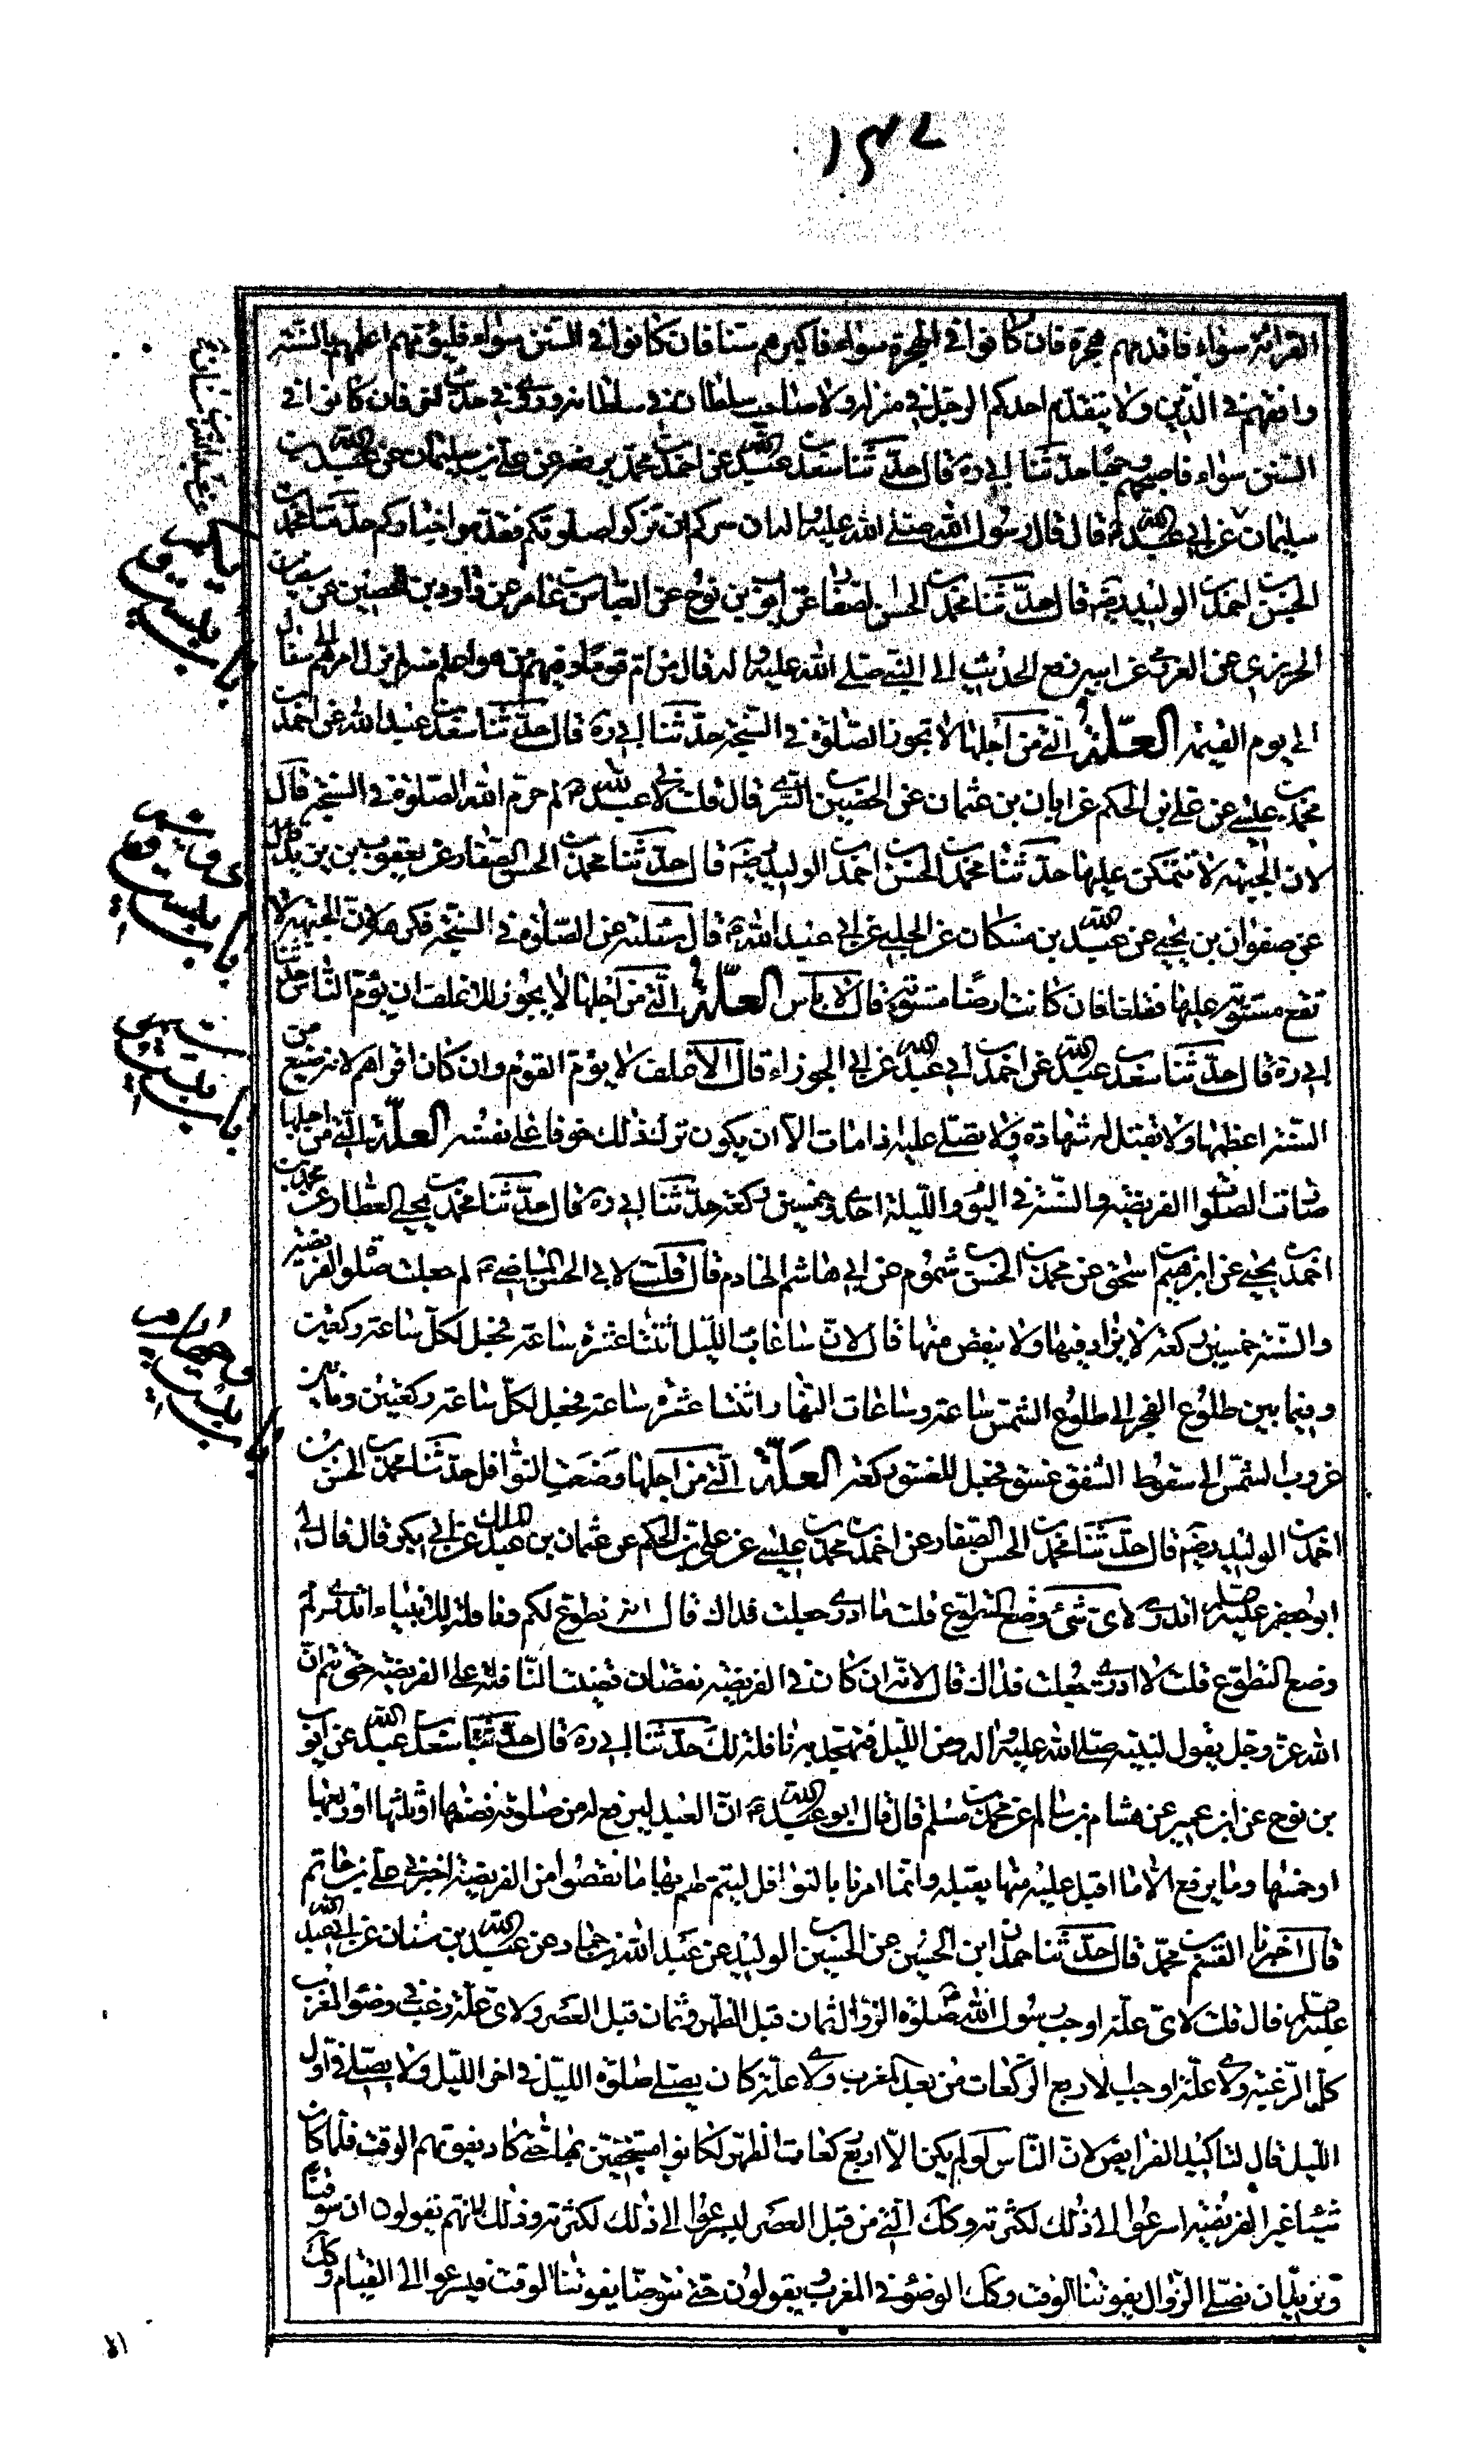 القرائة سواء فاقدمهم هجرة فان كانوا في الهجرة سواء فاكبرهم سنا فان كانوا في السن سواء فليؤمهم اعلمهم بالسنة
وافقههم في الدين ولا يتقدم احدكم الرجل في منزله ولا صاحب سلطان في سلطانه وروى في حديث اخر فان كانوا في
السن سواء فاصبحهم وجها حدثنا ابي ره قال حدثنا سعد بن عبد الله عن احمد بن محمد بن عن علي بن سليمان عن عبد الله بن
سليمان عن ابي عبد الله ع قال قال رسول الله صلى الله عليه واله ان سركم ان تزكو صلوتكم فقدموا خياركم حدثنا محمد بن
الحسن بن احمد بن الوليد رضه قال حدثنا محمد بن الحسن الصفار عن ايوب بن نوح عن العباس بن عامر عن داود بن الحصين عن سفيان
الحريري عن العرزمى عن ابيه رفع الحديث الى النبي صلى الله عليه واله قال من ام قوما وفيهم من هو اعلم منه لم يزل امرهم الى سفال
الى يوم القيمة العلة التي من اجلها لا تجوز الصلوة في السبخة حدثنا ابي ره قال حدثنا سعد بن عبد الله عن احمد بن
محمد بن عيسى عن علي بن الحكم عن ابان بن عثمان عن الحسين بن السرى قال قلت لابي عبد الله ع لم حرم الله الصلوة في السبخة قال
لان الجبهة لا تتمكن عليها حدثنا محمد بن الحسن بن احمد بن الوليد رضه قال حدثنا محمد بن الحسن الصفار عن يعقوب بن يزيد
عن صفوان بن يحيى عن عبد الله بن مسكان عن الحلبي عن ابي عبد الله ع قال سئلته عن الصلوة في السبخة فكرهه لان الجبهة لا
تقع مستوية عليها فقلنا فان كانت ارضا مستوية قال لا باس العلة التي من اجلها لا يجوز للاغلف ان يؤم الناس حدثنا
ابي ره قال حدثنا سعد بن عبد الله عن احمد بن ابي عبد الله عن ابي الجوزاء قال الاغلف لا يؤم القوم وان كان اقراهم لانه ضيع من
السنة اعظمها ولا تقبل له شهادة ولا يصلى عليه اذا مات الا ان يكون ترك ذلك خوفا على نفسه العلة التي من اجلها
صارت الصلوة الفريضة والسنة في اليوم والليلة احدى وخمسين ركعة حدثنا ابي ره قال حدثنا محمد بن يحيى العطار عن محمد بن
احمد بن يحيى عن ابرهيم بن اسحق عن محمد بن الحسن بن شموم عن ابي هاشم الخادم قال قلت لابي الحسن الماضي ع لم جعلت صلوة الفريضة
والسنة خمسين ركعة لا يزاد فيها ولا ينقص منها قال لان ساعات الليل اثنتا عشرة ساعة فجعل لكل ساعة ركعتين
وفيما بين طلوع الفجر الى طلوع الشمس ساعة وساعات النهار اثنتا عشرة ساعة فجعل لكل ساعة ركعتين وما بين
غروب الشمس الى سقوط الشفق غسق فجعل للغسق ركعة العلة التي من اجلها وضعت النوافل حدثنا محمد بن الحسن بن
احمد بن الوليد رضه قال حدثنا محمد بن الحسن الصفار عن احمد بن محمد بن عيسى عن علي بن الحكم عن عثمان بن عبد الملك عن ابي بكر قال قال لي
ابو جعفر عليه السلام اتدرى لاى شئ وضع التطوع قلت ما ادرى جعلت فداك قال انه تطوع لكم ونافلة للانبياء اتدرى لم
وضع التطوع قلت لا ادرى جعلت فداك قال لانه ان كان في الفريضة نقصان قضيت النافلة على الفريضة حتى تتم ان
الله عز وجل يقول لنبيه صلى الله عليه واله ومن الليل فتهجد به نافلة لك حدثنا ابي ره قال حدثنا سعد بن عبد الله عن ايوب
بن نوح عن ابن عمير عن هشام بن سالم عن محمد بن مسلم قال قال ابو عبد الله ع ان العبد ليرفع له من صلوته نصفها او ثلثها او ربعها
او خمسها وما يرفع الا ما اقبل عليه منها بقلبه وانما امرنا بالنوافل ليتم لهم بها ما نقصوا من الفريضة اخبرني علي بن حاتم
قال اخبرنا القسم بن محمد قال حدثنا حمدان ابن الحسين عن الحسين بن الوليد عن عبد الله بن حماد عن عبد الله بن سنان عن ابي عبد الله
عليه السلام قال قلت لاى علة اوجب رسول الله ص صلوة الزوال ثمان قبل الظهر وثمان قبل العصر ولاى علة رغب في وضوء المغرب
كل الرغبة ولاى علة اوجب الاربع الركعات من بعد المغرب ولاى علة كان يصلى صلوة الليل في اخر الليل ولا يصلى في اول
الليل قال لتاكيد الفرايض لان الناس لو لم يكن الا اربع ركعات الظهر لكانوا مستخفين بها حتى كاد يفوتهم الوقت فلما كان
شيئا غير الفريضة اسرعوا الى ذلك لكثرته وكك التي من قبل العصر ليسرعوا الى ذلك لكثرته وذلك لانهم يقولون ان سوفنا
ونريد ان نصلى الزوال يفوتنا الوقت وكك الوضوء في المغرب يقولون حتى نتوضا يفوتنا الوقت فيسرعوا الى القيام وكك